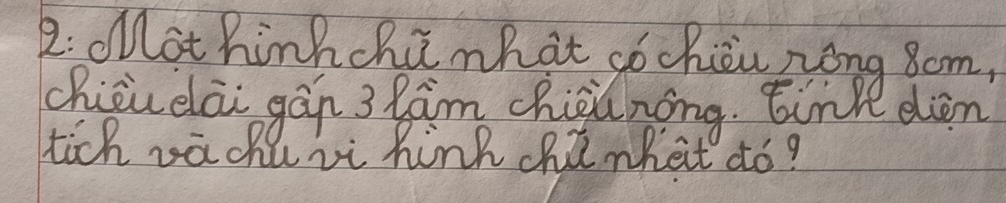 2: Một hình chữ nhật có chiều rộng 8cm,
chiều dài gấp 3 lầm chiều rộng. Tính diện
tích và chu vi hình chữ nhật đó?